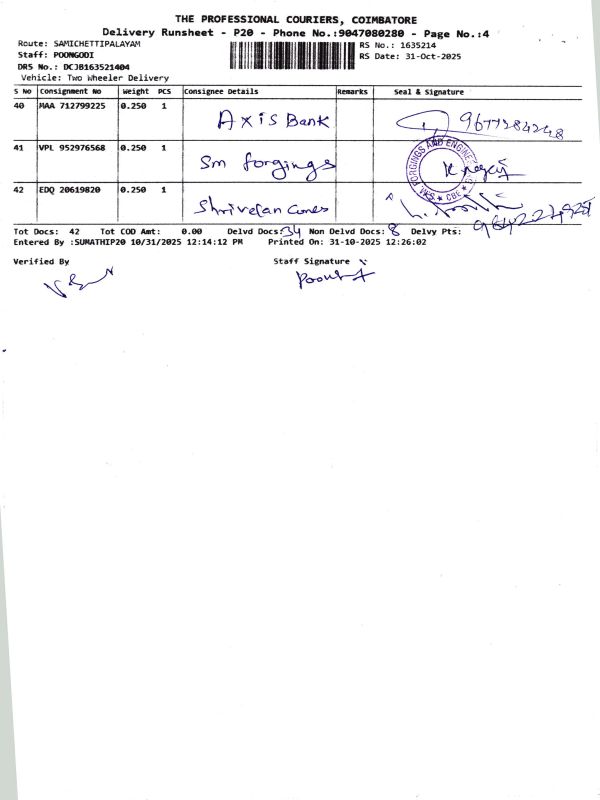 THE PROFESSIONAL COURIERS, COIMBATORE
Delivery Runsheet - P20 - Phone No.:9047080280 - Page No.:4
Route: SAMICHETTIPALAYAM
RS No.: 1635214
Staff: POONGODI
RS Date: 31-Oct-2025
DRS No.: DCJB163521404
Vehicle: Two Wheeler Delivery
S No Consignment No Weight PCS Consignee Details Remarks Seal & Signature
40 MAA 712799225 0.250 1 Axis Bank 9677284248
41 VPL 952976568 0.250 1 Sm forgings
FORGINGS AND ENGINEE CBE
42 EDQ 20619820 0.250 1 Shrivelan
Tot Docs: 42 Tot COD Amt: 0.00 Delvd Docs: 34 Non Delvd Docs: 8 Delvy Pts:
Entered By :SUMATHIP20 10/31/2025 12:14:12 PM Printed On: 31-10-2025 12:26:02
Verified By Staff Signature :